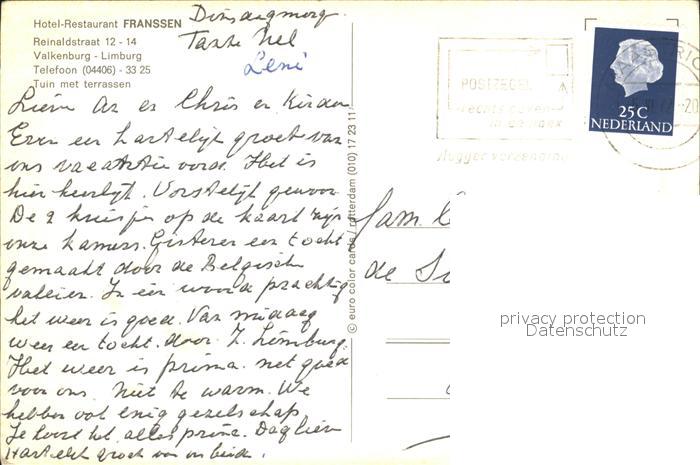 Hotel-Restaurant FRANSSEN
Reinaldstraat 12 - 14
Valkenburg - Limburg
Telefoon (04406) - 33 25
Tuin met terrassen
Dinsdagmorg.
Tante Nel
Leni
Lieve An en Chris en Kinder
Even een hartelijk groet van
ons vacantie oord. Het is
hier heerlijk. Vorstelijk gewoon
De 2 kruisjes op de kaart zijn
onze kamers. Gisteren een tocht
gemaakt door de Belgische
valeien. In één woord prachtig
het weer is goed. Van middag
weer een tocht door Z. Limburg.
Het weer is prima. net goed
voor ons. Niet te warm. We
hebben ook enig gezelschap
Je hoort het, alles prima. Dag lieve
Hartelijk groet van ons beide.
© euro color cards / rotterdam (010) 17 23 11
POSTZEGEL
rechts boven
in de hoek
Vlugger verzending
25 C
NEDERLAND
Fam.
de
privacy protection
Datenschutz